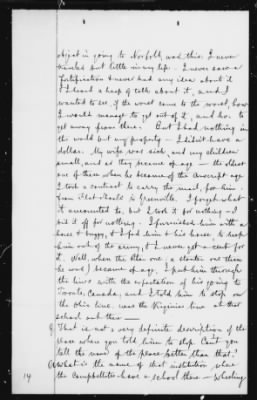 object in going to Norfolk was this. I never
travelled but little in my life. I never saw a
fortification & never had any idea about it
& I heard a heap of talk about it, and I
wanted to see, if the worst came to the worst, how
I would manage to get out of it, and how to
get away from there. But I had nothing in
the world but my property – I didn't have a
dollar. My wife was sick, and my children
small, and as they became of age – the oldest
one of them when he became of the conscript age
I took a contract to carry the mail, for him
from to Greenville. I forget what
it amounted to, but I took it for nothing – I
bid it off for nothing. I furnished him with a
horse & buggy, & I fed him & his horse to keep
him out of the army, & I never got a cent for
it. Well, when the other one, a smarter one than
he was, became of age, I put him through
the lines with the expectation of his going to
Toronto, Canada, and I told him to stop on
the Ohio line, near the Virginia line at that
school out there —
Q. That is not a very definite description of the
place where you told him to stop. Can't you
tell the name of the place better than that?
Q. What is the name of that institution where
the Campbellites have a school there – Wheeling
14